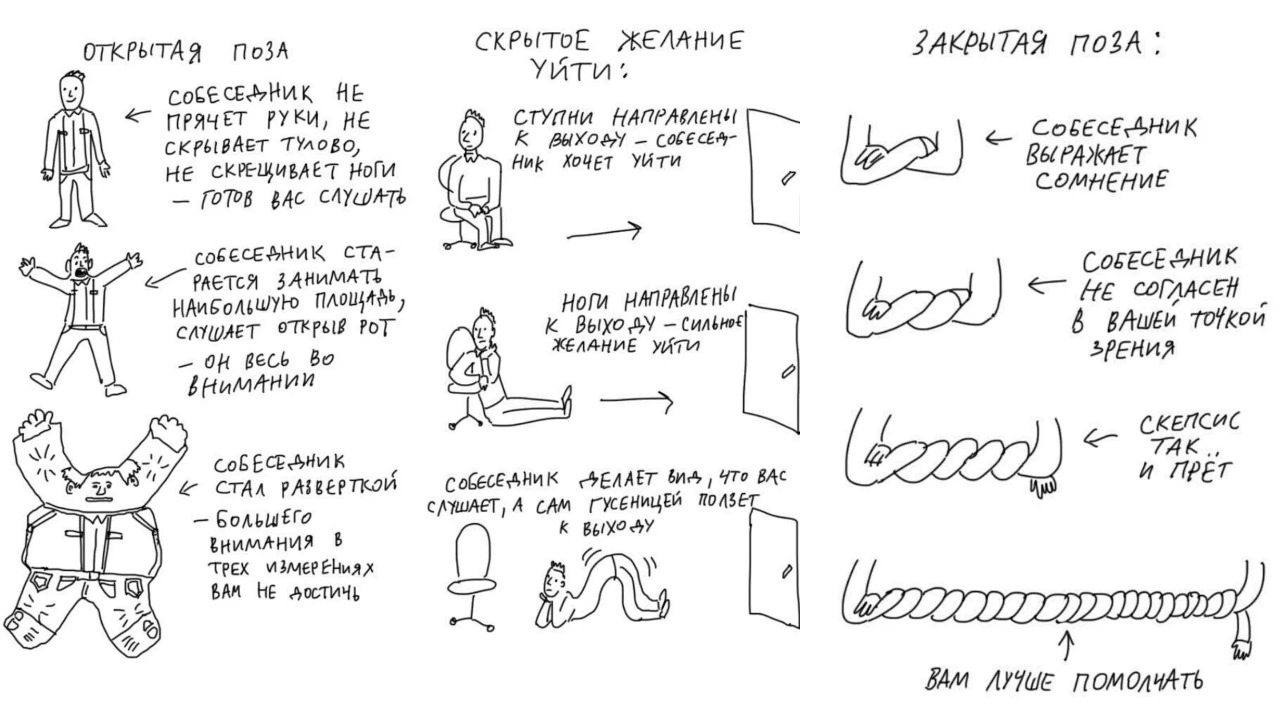 ОТКРЫТАЯ ПОЗА
СОБЕСЕДНИК НЕ
ПРЯЧЕТ РУКИ, НЕ
СКРЫВАЕТ ТУЛОВО,
НЕ СКРЕЩИВАЕТ НОГИ
– ГОТОВ ВАС СЛУШАТЬ
СОБЕСЕДНИК СТА-
РАЕТСЯ ЗАНИМАТЬ
НАИБОЛЬШУЮ ПЛОЩАДЬ,
СЛУШАЕТ ОТКРЫВ РОТ
– ОН ВЕСЬ ВО
ВНИМАНИИ
СОБЕСЕДНИК
СТАЛ РАЗВЕРТКОЙ
– БОЛЬШЕГО
ВНИМАНИЯ В
ТРЕХ ИЗМЕРЕНИЯХ
ВАМ НЕ ДОСТИЧЬ
СКРЫТОЕ ЖЕЛАНИЕ
УЙТИ:
СТУПНИ НАПРАВЛЕНЫ
К ВЫХОДУ – СОБЕСЕД-
НИК ХОЧЕТ УЙТИ
НОГИ НАПРАВЛЕНЫ
К ВЫХОДУ – СИЛЬНОЕ
ЖЕЛАНИЕ УЙТИ
СОБЕСЕДНИК ДЕЛАЕТ ВИД, ЧТО ВАС
СЛУШАЕТ, А САМ ГУСЕНИЦЕЙ ПОЛЗЕТ
К ВЫХОДУ
ЗАКРЫТАЯ ПОЗА:
СОБЕСЕДНИК
ВЫРАЖАЕТ
СОМНЕНИЕ
СОБЕСЕДНИК
НЕ СОГЛАСЕН
В ВАШЕЙ ТОЧКОЙ
ЗРЕНИЯ
СКЕПСИС
ТАК
И ПРЁТ
ВАМ ЛУЧШЕ ПОМОЛЧАТЬ